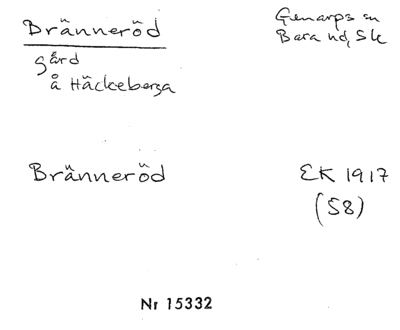 Bränneröd
gård
å Häckeberga
Genarps sn
Bara hd, Sk
Bränneröd
EK 1917
(58)
Nr 15332